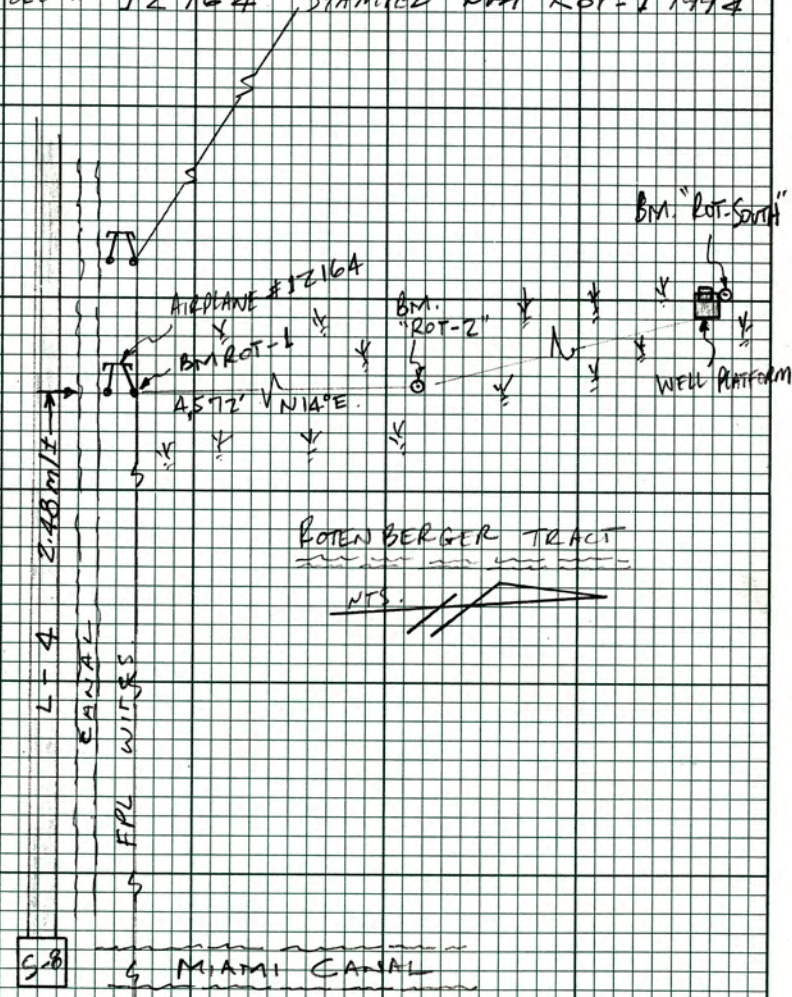 12164 STAMPED ROT-1 1994
BM. "ROT-SOUTH"
AIRPLANE #12164
BM.
"ROT-2"
BM ROT-1
WELL PLATFORM
4,572' N14°E.
2.48 mi±
ROTENBERGER TRACT
NTS.
L-4
CANAL
FPL WIRES
S-8
MIAMI CANAL